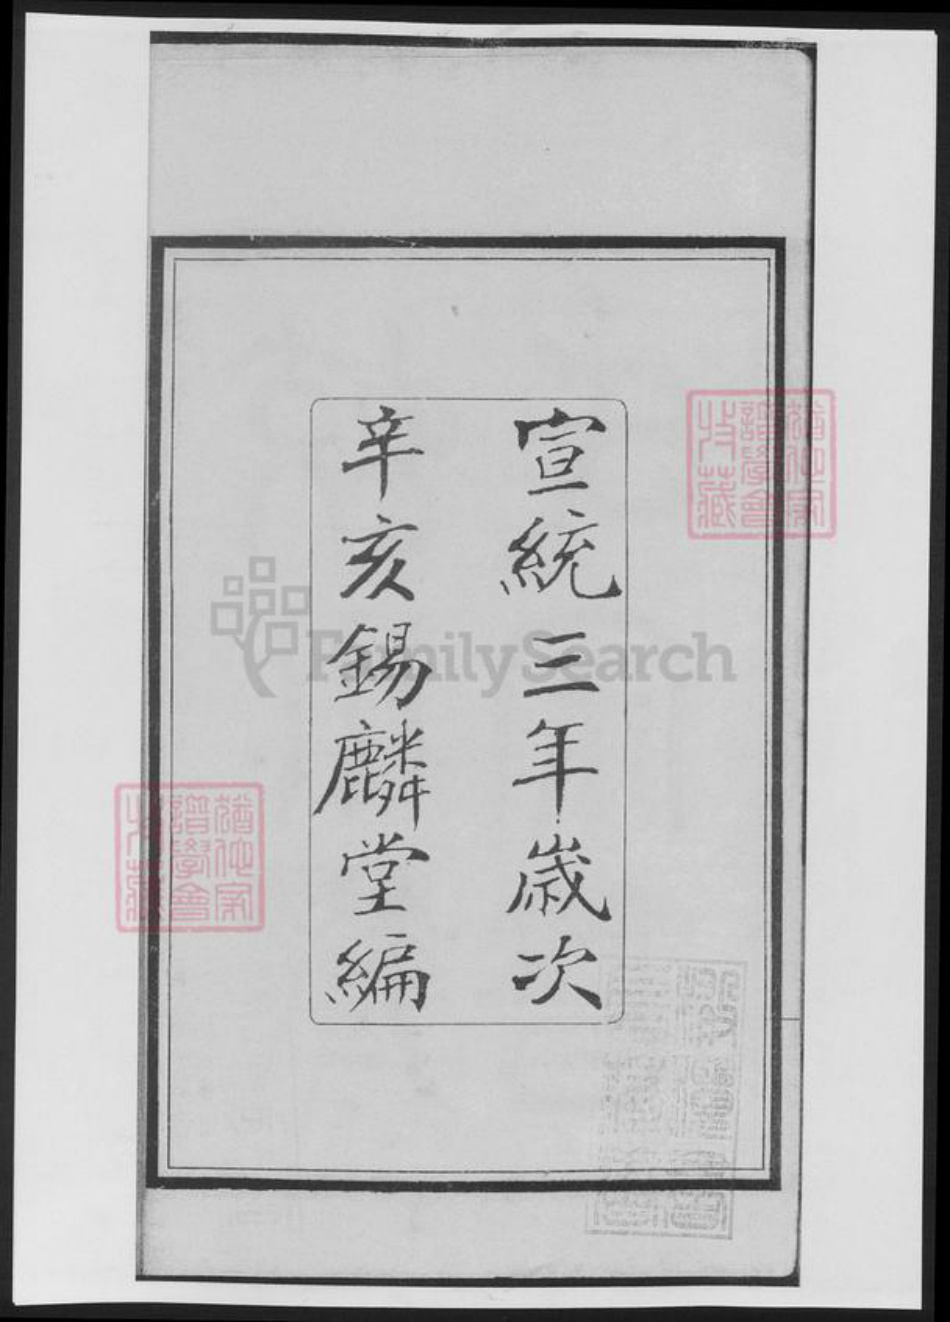 宣統三年歲次
辛亥錫麟堂編
譜學會
收藏
譜學會
收藏
FamilySearch